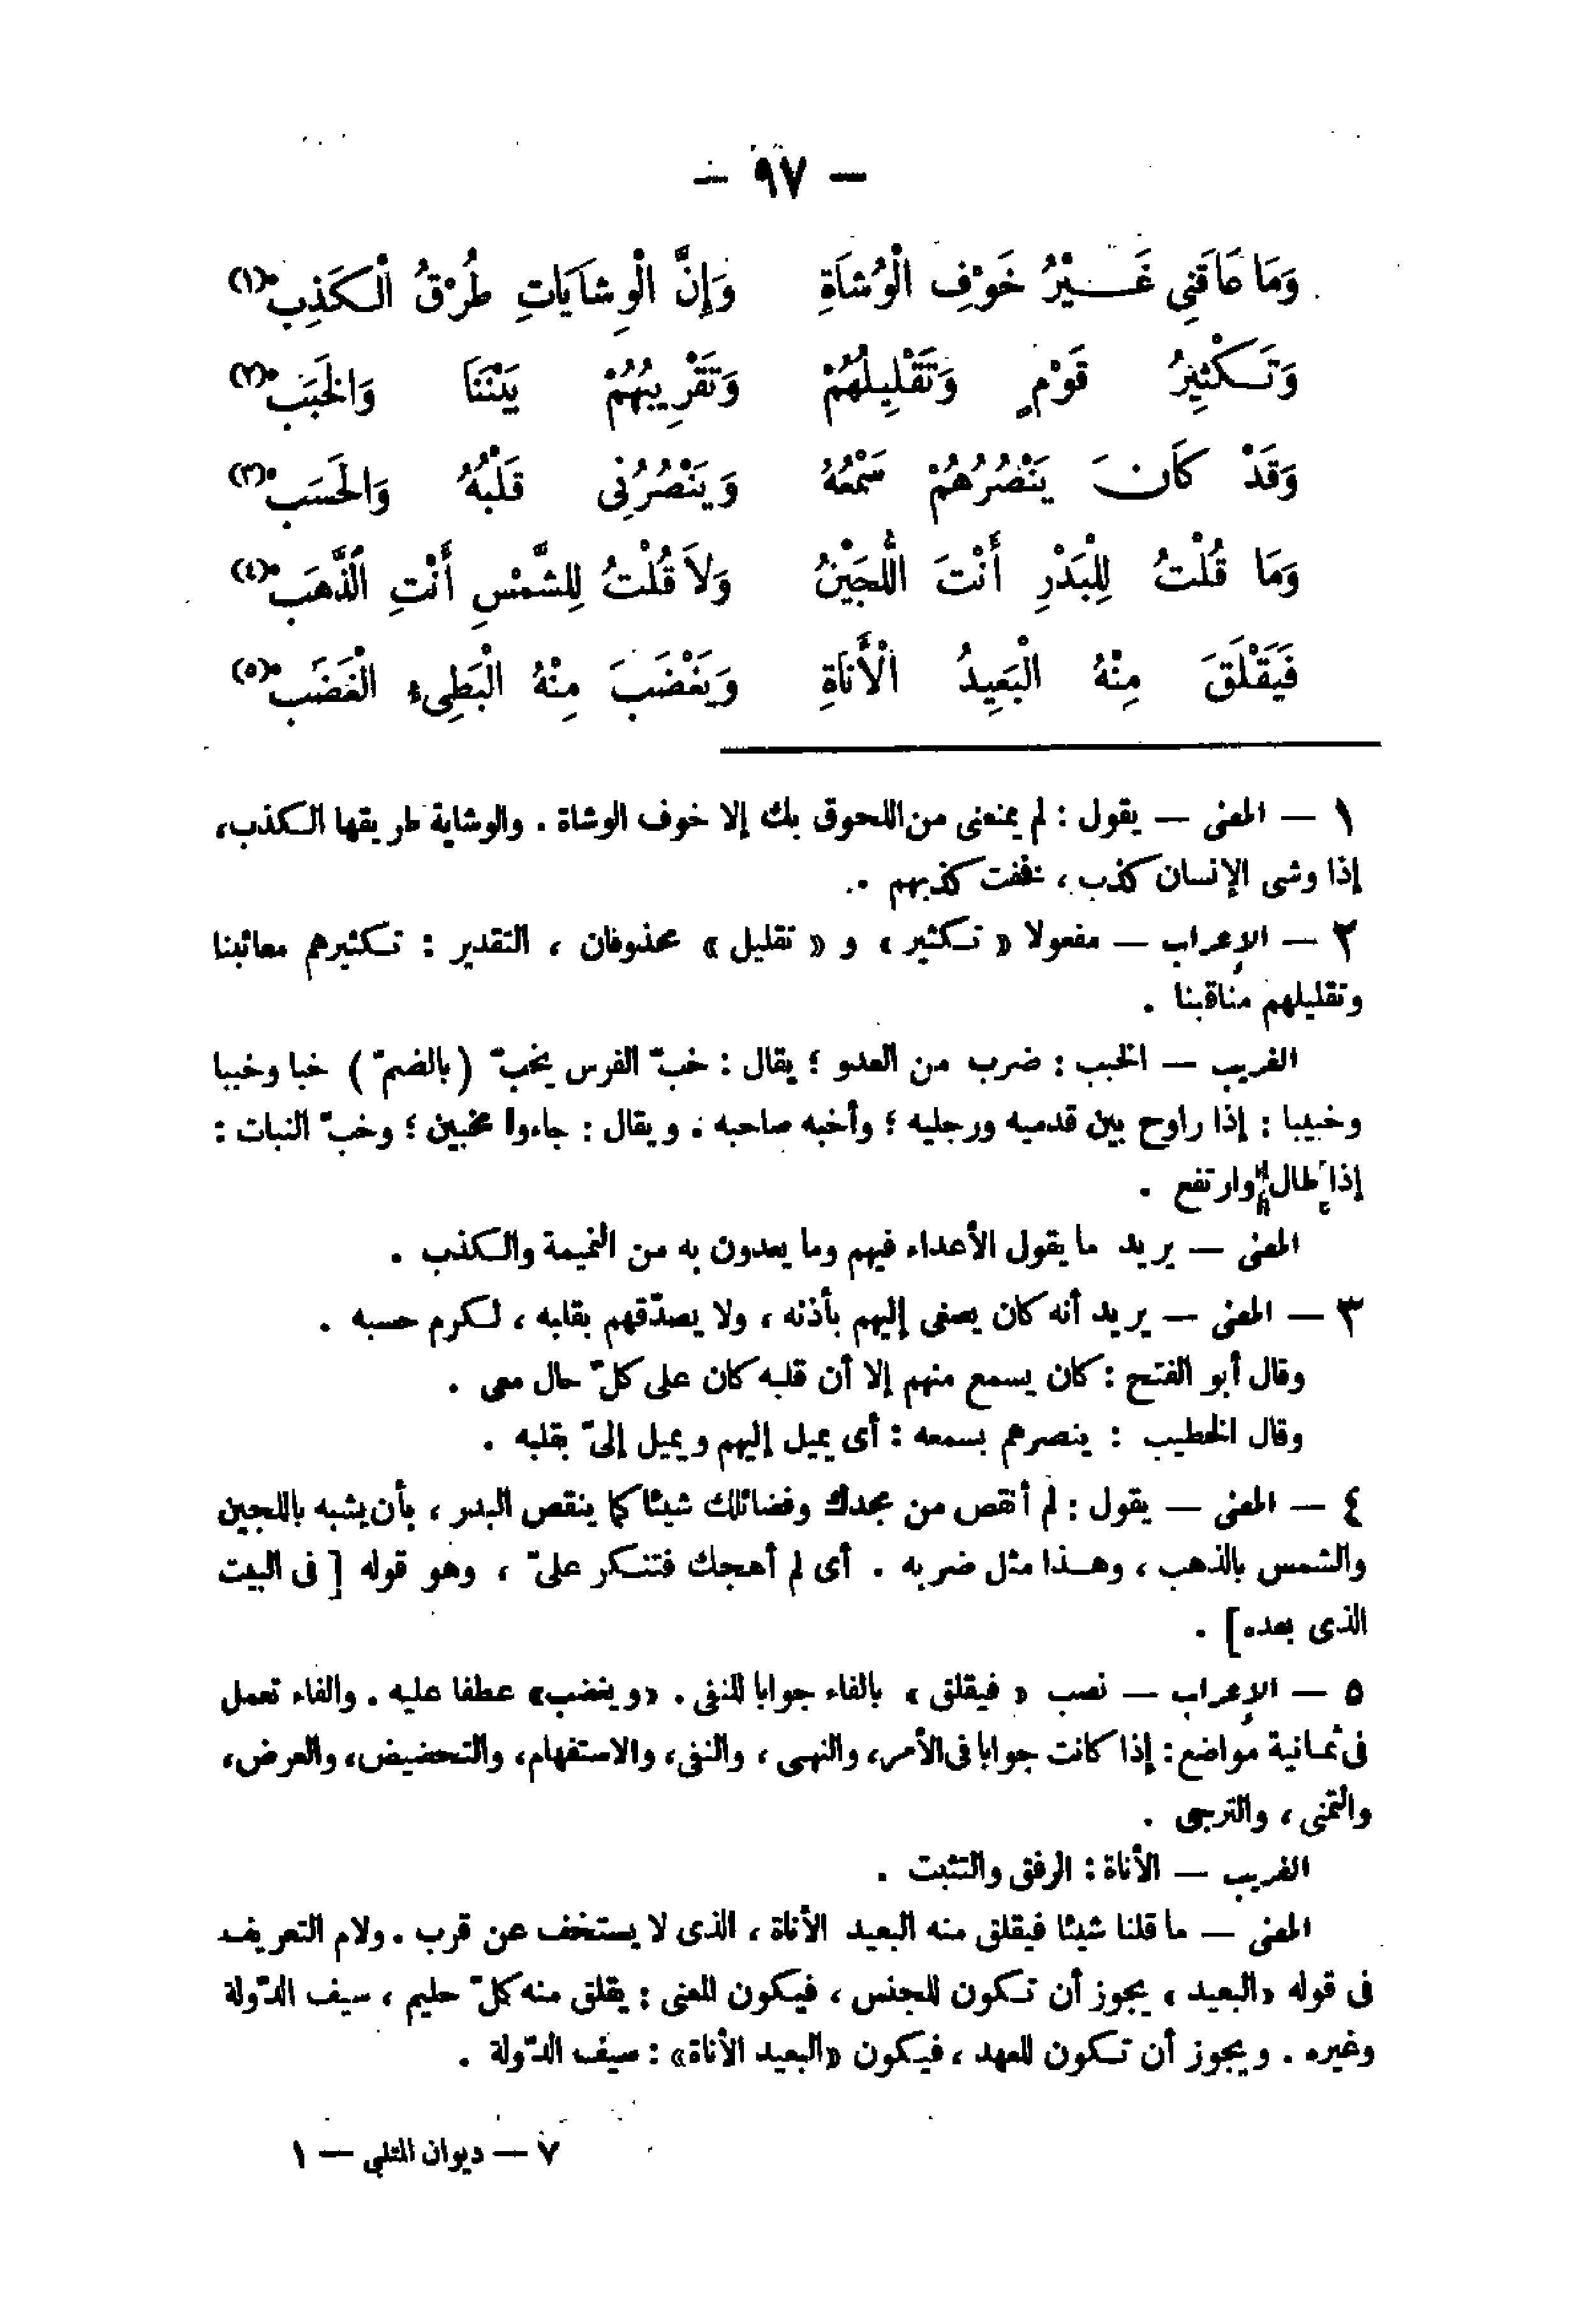 — ٩٧ —
وَمَا عَاقَنِى غَيْرُ خَوْفِ الْوُشَاةِ وَإِنَّ الْوِشَايَاتِ طُرْقُ الْكَذِبْ (١)
وَتَكْثِيرُ قَوْمٍ وَتَقْلِيلُهُمْ وَتَقْرِيبُهُمْ بَيْنَنَا وَالْخَبَبْ (٢)
وَقَدْ كَانَ يَنْصُرُهُمْ سَمْعُهُ وَيَنْصُرُنِى قَلْبُهُ وَالْحَسَبْ (٣)
وَمَا قُلْتُ لِلْبَدْرِ أَنْتَ اللُّجَيْنُ وَلاَ قُلْتُ لِلشَّمْسِ أَنْتِ الذَّهَبْ (٤)
فَيَقْلَقَ مِنْهُ الْبَعِيدُ الْأَنَاةِ وَيَغْضَبَ مِنْهُ الْبَطِىءِ الْغَضَبْ (٥)
١ — المعنى — يقول : لم يمنعنى من اللحوق بك إلا خوف الوشاة . والوشاية طريقها الكذب،
إذا وشى الإنسان كذب ، فخفت كذبهم .
٢ — الإعراب — مفعولا « تكثير » و « تقليل » محذوفان ، التقدير : تكثيرهم معائبنا
وتقليلهم مناقبنا .
الغريب — الخبب : ضرب من العدو ؛ يقال : خبّ الفرس يخبّ (بالضمّ) خبا وخببا
وخبيبا : إذا راوح بين قدميه ورجليه ؛ وأخبه صاحبه . ويقال : جاءوا مخبين ؛ وخبّ النبات :
إذا طال وارتفع .
المعنى — يريد ما يقول الأعداء فيهم وما يعدون به من النميمة والكذب .
٣ — المعنى — يريد أنه كان يصغى إليهم بأذنه ، ولا يصدّقهم بقلبه ، لكرم حسبه .
وقال أبو الفتح : كان يسمع منهم إلا أن قلبه كان على كلّ حال معى .
وقال الخطيب : ينصرهم بسمعه : أى يميل إليهم ويميل إلىّ بقلبه .
٤ — المعنى — يقول : لم أنقص من مجدك وفضائلك شيئا كما ينقص البدر ، بأن يشبه باللجين
والشمس بالذهب ، وهذا مثل ضربه . أى لم أهجك فتنكر علىّ ، وهو قوله [ فى البيت
الذى بعده] .
٥ — الإعراب — نصب « فيقلق » بالفاء جوابا للنفى . «ويغضب» عطفا عليه . والفاء تعمل
فى ثمانية مواضع : إذا كانت جوابا فى الأمر، والنهى ، والنفى، والاستفهام، والتحضيض، والعرض،
والتمنى ، والترجى .
الغريب — الأناة : الرفق والتثبت .
المعنى — ما قلنا شيئا فيقلق منه البعيد الأناة ، الذى لا يستخف عن قرب . ولام التعريف
فى قوله «البعيد» يجوز أن تكون للجنس ، فيكون المعنى : يقلق منه كلّ حليم ، سيف الدّولة
وغيره . ويجوز أن تكون للعهد ، فيكون «البعيد الأناة» : سيف الدّولة .
٧ — ديوان المتنبى — ١